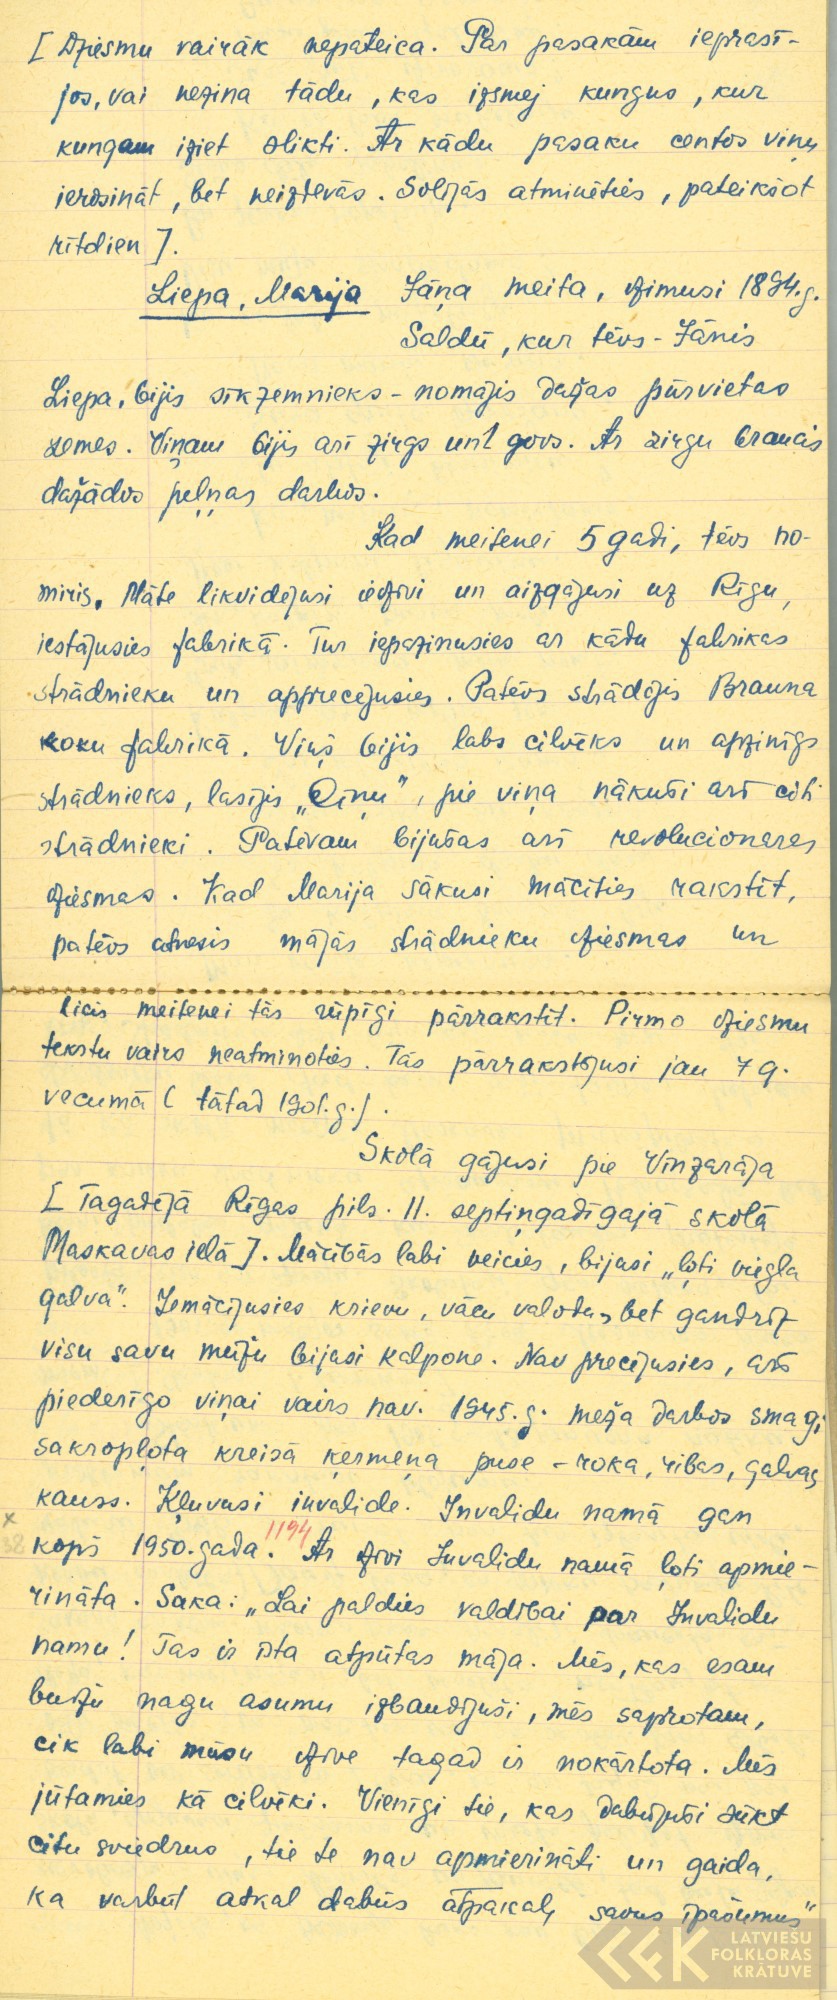 [ Dziesmu vairāk nepateica. Par pasakām ieprasī-
jos, vai nezina tādu, kas izsmej kungus, kur
kungam iziet slikti. Ar kādu pasaku centos viņu
ierosināt, bet neizdevās. Solījās atminēties, pateikšot
rītdien ].
Liepa, Marija Jāņa meita, dzimusi 1894.g.
Saldū, kur tēvs - Jānis
Liepa, bijis sīkzemnieks - nomājis dažas pūrvietas
zemes. Viņam bijis arī zirgs un 1 govs. Ar zirgu braucis
dažādos peļņas darbos.
Kad meitenei 5 gadi, tēvs no-
miris. Māte likvidējusi iedzīvi un aizgājusi uz Rīgu,
iestājusies fabrikā. Tur iepazinusies ar kādu fabrikas
strādnieku un apprecējusies. Patēvs strādājis Brauna
koku fabrikā. Viņš bijis labs cilvēks un apzinīgs
strādnieks, lasījis „Cīņu”, pie viņa nākuši arī citi
strādnieki. Patēvam bijušas arī revolucionāras
dziesmas. Kad Marija sākusi mācīties rakstīt,
patēvs atnesis mājās strādnieku dziesmas un
licis meitenei tās rūpīgi pārrakstīt. Pirmo dziesmu
tekstu vairs neatminoties. Tās pārrakstījusi jau 7 g.
vecumā ( tātad 1901.g.).
Skolā gājusi pie Vinzarāja
[ Tagadējā Rīgas pils. 11. septiņgadīgajā skolā
Maskavas ielā ]. Mācībās labi veicies, bijusi „ļoti viegla
galva”. Iemācījusies krievu, vācu valodu, bet gandrīz
visu savu mūžu bijusi kalpone. Nav precējusies, arī
piederīgo viņai vairs nav. 1945.g. meža darbos smagi
sakropļota kreisā ķermeņa puse - roka, ribas, galvas
kauss. Kļuvusi invalīde. Invalīdu namā gan
x
38 kopš 1950. gada. 1194 Ar dzīvi Invalīdu namā ļoti apmie-
rināta. Saka: „Lai paldies valdībai par Invalīdu
namu! Tas ir īsta atpūtas māja. Mēs, kas esam
buržu nagu asumu izbaudījuši, mēs saprotam,
cik labi mūsu dzīve tagad ir nokārtota. Mēs
jūtamies kā cilvēki. Vienīgi tie, kas dabūjuši sūkt
citu sviedrus, tie te nav apmierināti un gaida,
ka varbūt atkal dabūs atpakaļ savus īpašumus”
LATVIEŠU
FOLKLORAS
KRĀTUVE